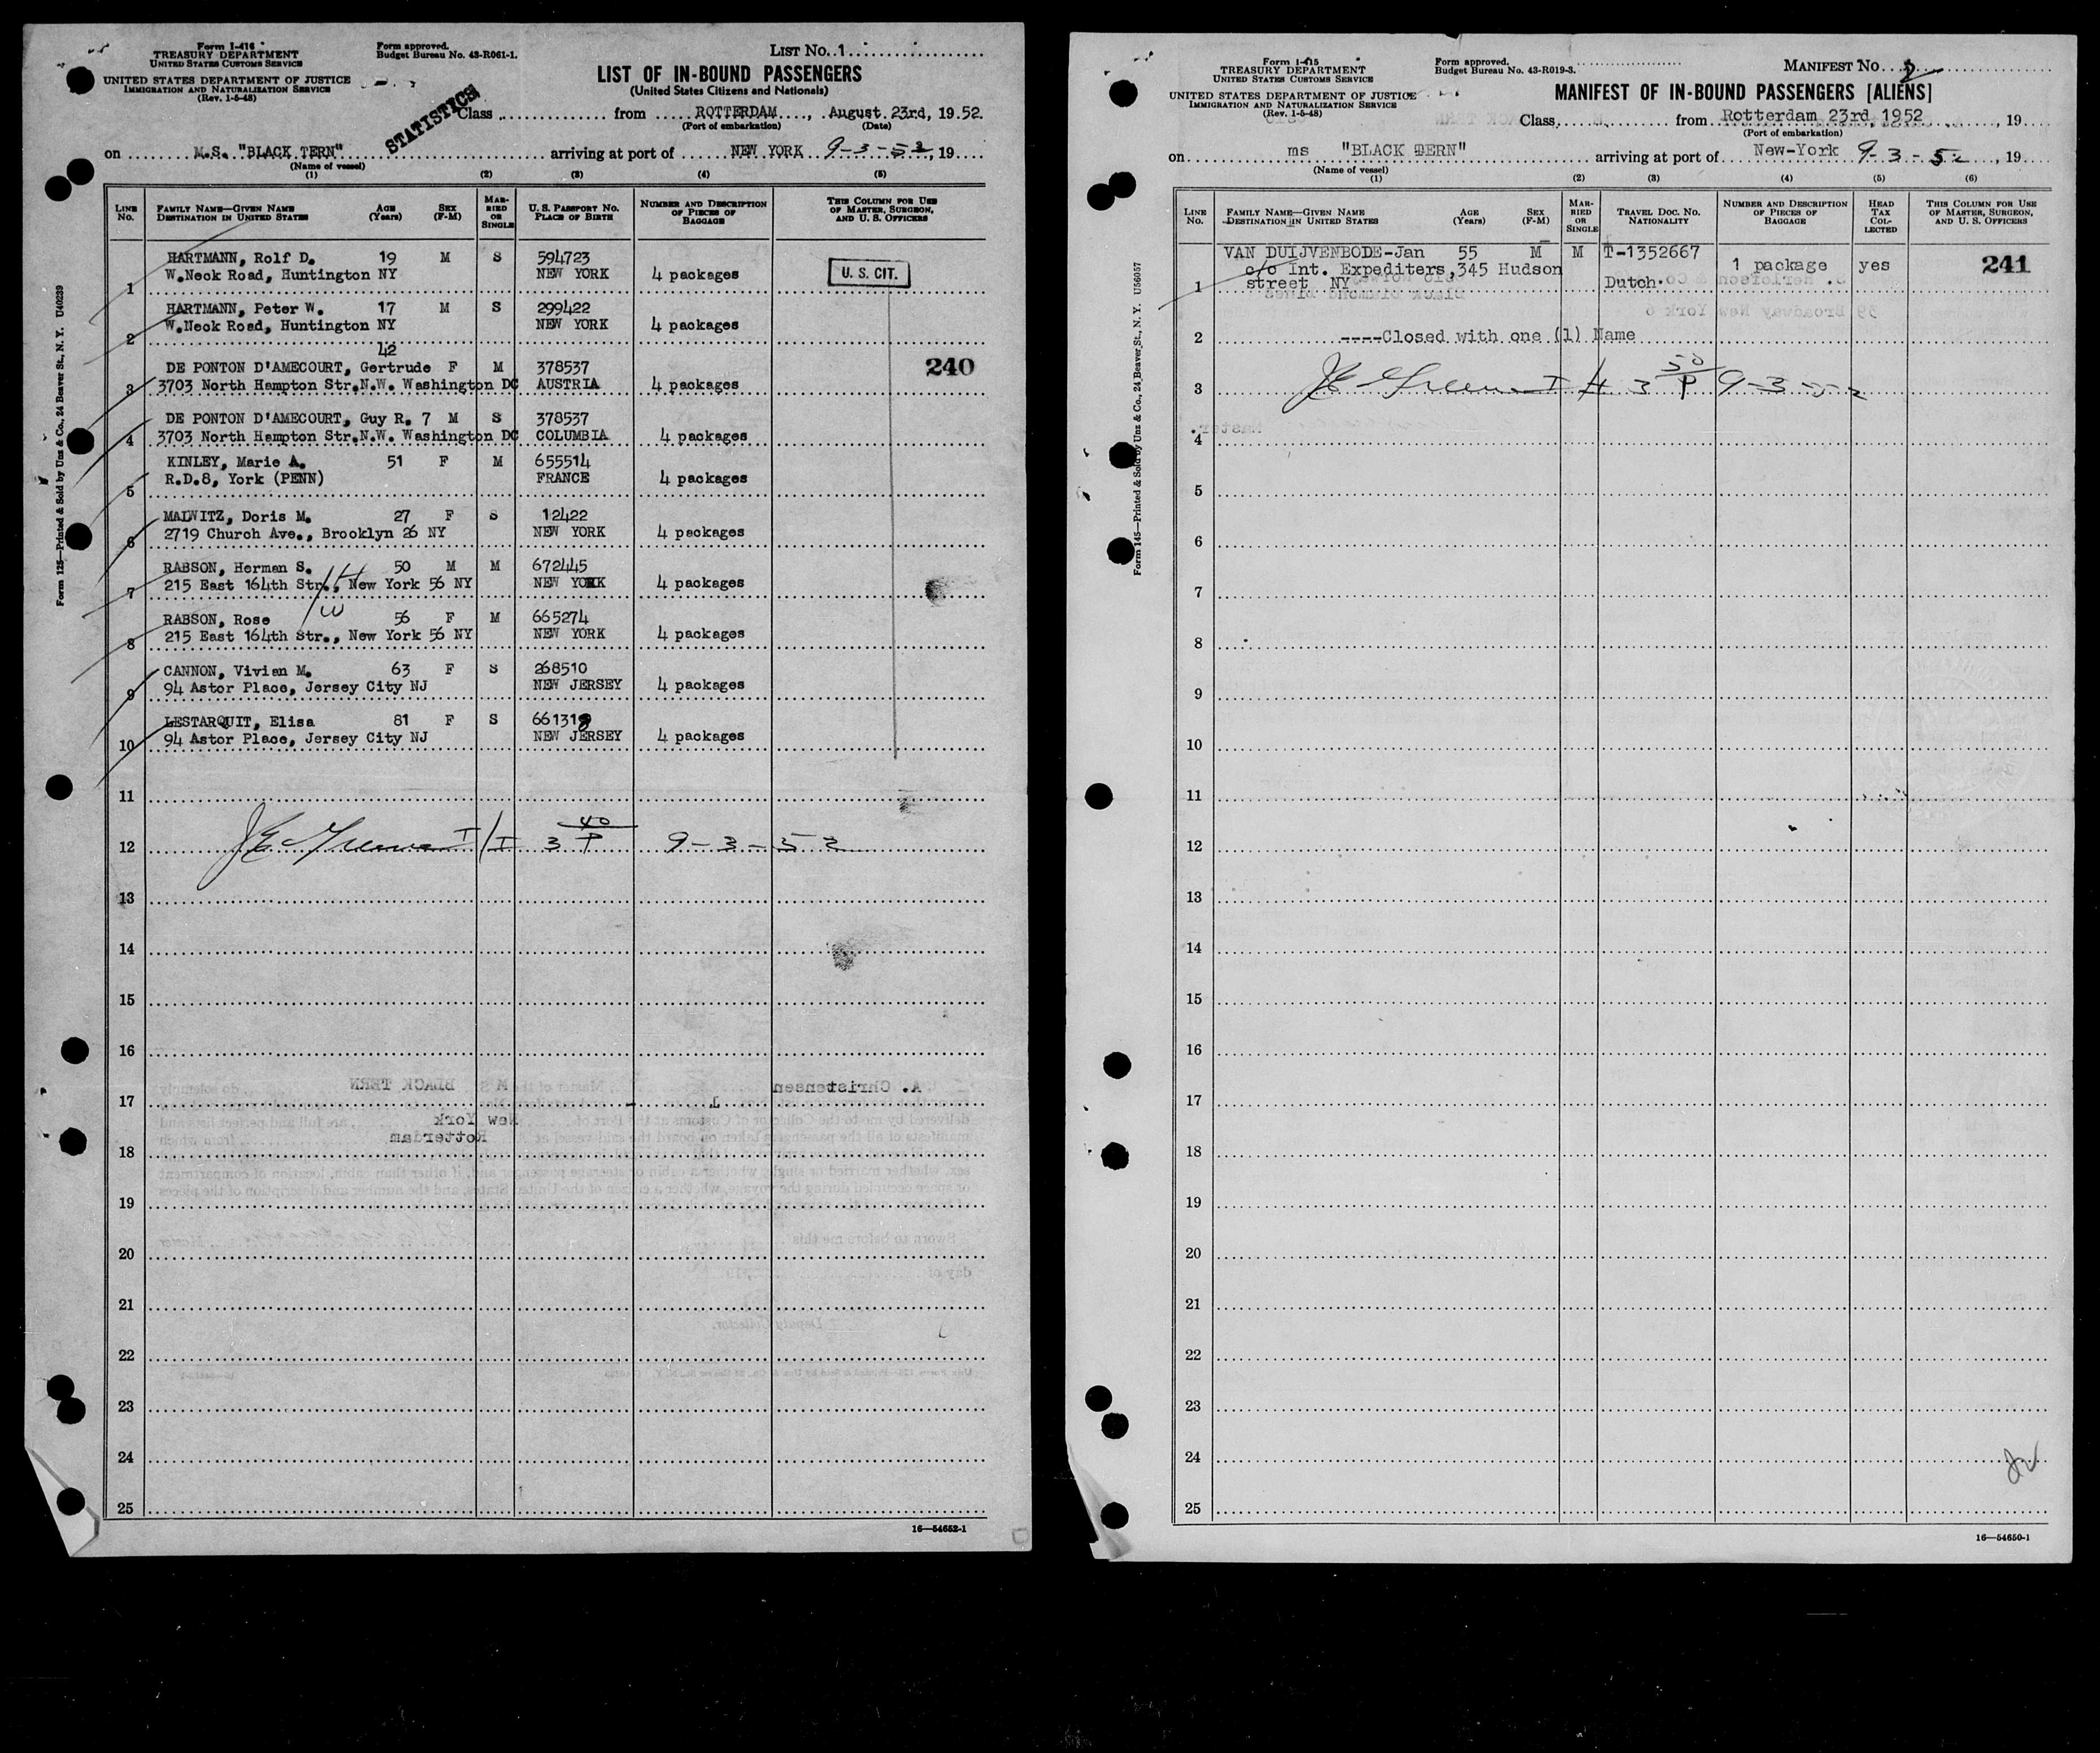 Form I-416
TREASURY DEPARTMENT
UNITED STATES CUSTOMS SERVICE
UNITED STATES DEPARTMENT OF JUSTICE
IMMIGRATION AND NATURALIZATION SERVICE
(Rev. 1-5-48)
Form approved.
Budget Bureau No. 43-R061-1.
LIST No. 1
LIST OF IN-BOUND PASSENGERS
(United States Citizens and Nationals)
STATISTICS
Class from ROTTERDAM, August 23rd, 1952.
(Port of embarkation) (Date)
on M.S. "BLACK TERN" arriving at port of NEW YORK 9-3-52, 19
(Name of vessel)
(1) (2) (3) (4) (5)
LINE No.
FAMILY NAME—GIVEN NAME AGE (Years) SEX (F-M)
DESTINATION IN UNITED STATES
MARRIED OR SINGLE
U. S. PASSPORT NO. PLACE OF BIRTH
NUMBER AND DESCRIPTION OF PIECES OF BAGGAGE
THIS COLUMN FOR USE OF MASTER, SURGEON, AND U. S. OFFICERS
HARTMANN, Rolf D. 19 M S 594723
1 W.Neck Road, Huntington NY NEW YORK 4 packages U. S. CIT.
HARTMANN, Peter W. 17 M S 299422
2 W.Neck Road, Huntington NY NEW YORK 4 packages
42
DE PONTON D'AMECOURT, Gertrude F M 378537 240
3 3703 North Hampton Str.N.W. Washington DC AUSTRIA 4 packages
DE PONTON D'AMECOURT, Guy R. 7 M S 378537
4 3703 North Hampton Str.N.W. Washington DC COLUMBIA 4 packages
KINLEY, Marie A. 51 F M 655514
5 R.D.8, York (PENN) FRANCE 4 packages
MALWITZ, Doris M. 27 F S 12422
6 2719 Church Ave., Brooklyn 26 NY NEW YORK 4 packages
RABSON, Herman S. 50 M M 672445
7 215 East 164th Str., New York 56 NY NEW YORK 4 packages
H
W
RABSON, Rose 56 F M 665274
8 215 East 164th Str., New York 56 NY NEW YORK 4 packages
CANNON, Vivian M. 63 F S 268510
9 94 Astor Place, Jersey City NJ NEW JERSEY 4 packages
LESTARQUIT, Elisa 81 F S
10 94 Astor Place, Jersey City NJ NEW JERSEY 4 packages
11
12 3 40 P 9-3-52
13
14
15
16
17
18
19
20
21
22
23
24
25
16—54652-1
Form 125—Printed & Sold by Unz & Co., 24 Beaver St., N. Y. U40239
Form I-415
TREASURY DEPARTMENT
UNITED STATES CUSTOMS SERVICE
UNITED STATES DEPARTMENT OF JUSTICE
IMMIGRATION AND NATURALIZATION SERVICE
(Rev. 1-5-48)
Form approved.
Budget Bureau No. 43-R019-3.
MANIFEST No. 2
MANIFEST OF IN-BOUND PASSENGERS [ALIENS]
Class from Rotterdam 23rd, 1952, 19
(Port of embarkation)
on ms "BLACK TERN" arriving at port of New-York 9-3-52, 19
(Name of vessel)
(1) (2) (3) (4) (5) (6)
LINE No.
FAMILY NAME—GIVEN NAME AGE (Years) SEX (F-M)
DESTINATION IN UNITED STATES
MARRIED OR SINGLE
TRAVEL DOC. NO. NATIONALITY
NUMBER AND DESCRIPTION OF PIECES OF BAGGAGE
HEAD TAX COLLECTED
THIS COLUMN FOR USE OF MASTER, SURGEON, AND U. S. OFFICERS
VAN DUIJVENBODE-Jan 55 M M T-1352667
c/o Int. Expediters,345 Hudson 1 package yes 241
1 street NY Dutch
2 ----Closed with one (1) Name
3 3 50 P 9-3-52
4
5
6
7
8
9
10
11
12
13
14
15
16
17
18
19
20
21
22
23
24
25
16—54650-1
Form 145—Printed & Sold by Unz & Co., 24 Beaver St., N. Y. U56057